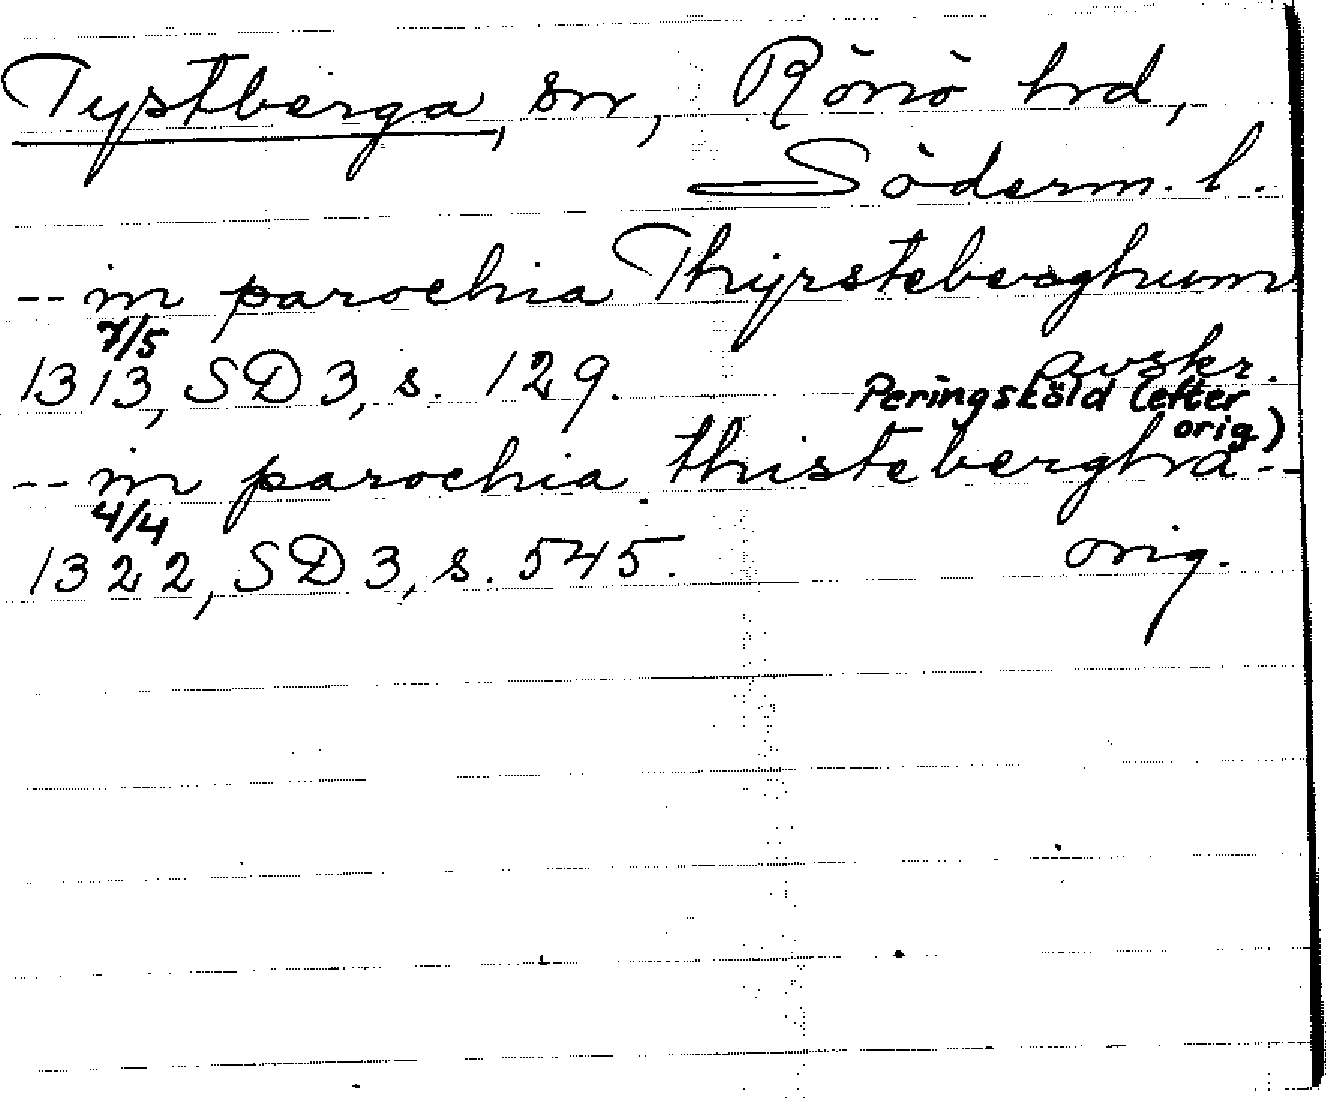 Tystberga, sn, Rönö hd,
Söderm. l.
-- in parochia Thyrsteberghum
7/5
1313, SD 3, s. 129. avskr.
Peringsköld (efter
orig)
-- in parochia thistebergha --
4/4
1322, SD 3, s. 545. orig.